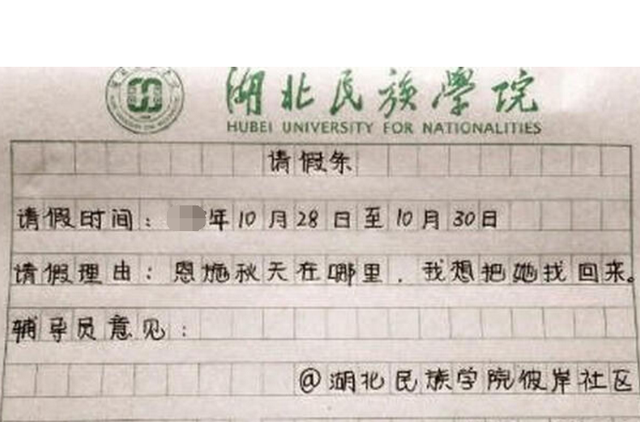 湖北民族学院
HUBEI UNIVERSITY FOR NATIONALITIES
请假条
请假时间：年10月28日至10月30日
请假理由：恩施秋天在哪里，我想把她找回来。
辅导员意见：
@湖北民族学院彼岸社区